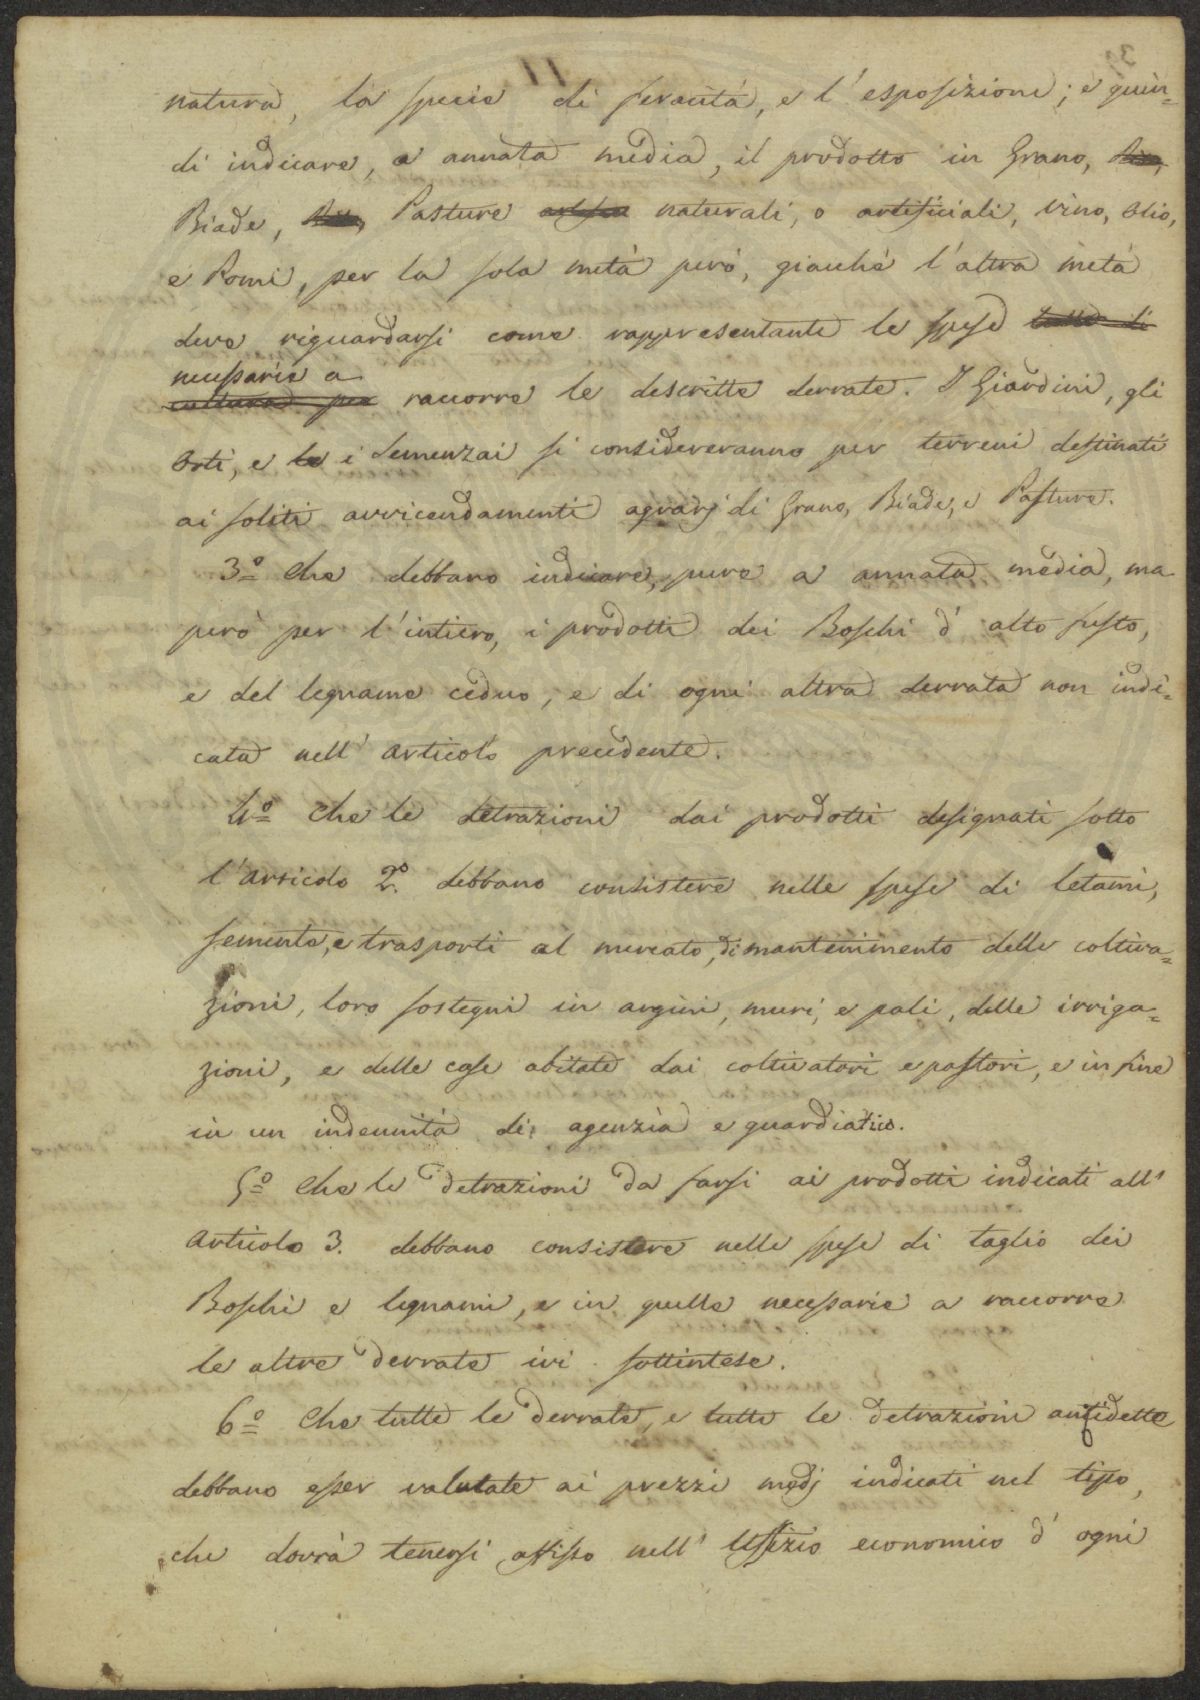 natura, la specie di feracità, e l'esposizione; e quin=
di indicare, a annata media, il prodotto in Grano,
Biade, Pasture naturali, o artificiali, vino, olio,
e Pomi, per la sola metà però, giacchè l'altra metà
deve riguardarsi come rappresentante le spese
necessarie a
cultura per raccorre le descritte derrate. I Giardini, gli
orti, e le i Semenzai si considereranno per terreni destinati
ai soliti avvicendamenti agrarj di Grano, Biade, e Pasture.
3.º Che debbano indicare, pure a annata media, ma
però per l'intiero, i prodotti dei Boschi d'alto fusto,
e del legname ceduo, e di ogni altra derrata non indi=
cata nell'articolo precedente.
4.º Che le detrazioni dai prodotti designati sotto
l'articolo 2.º debbano consistere nelle spese di letami,
semente, e trasporti al mercato, di mantenimento delle coltiva=
zioni, loro sostegni in argini, muri, e pali, delle irriga=
zioni, e delle case abitate dai coltivatori e pastori, e in fine
in un indennità di agenzia e guardiatico.
5.º Che le detrazioni da farsi ai prodotti indicati all'
articolo 3. debbano consistere nelle spese di taglio dei
Boschi e legnami, e in quelle necessarie a raccorre
le altre derrate ivi sottintese.
6.º Che tutte le derrate, e tutte le detrazioni antidette
debbano esser valutate ai prezzi medj indicati nel tipo,
che dovrà tenersi affisso nell'Uffizio economico d'ogni